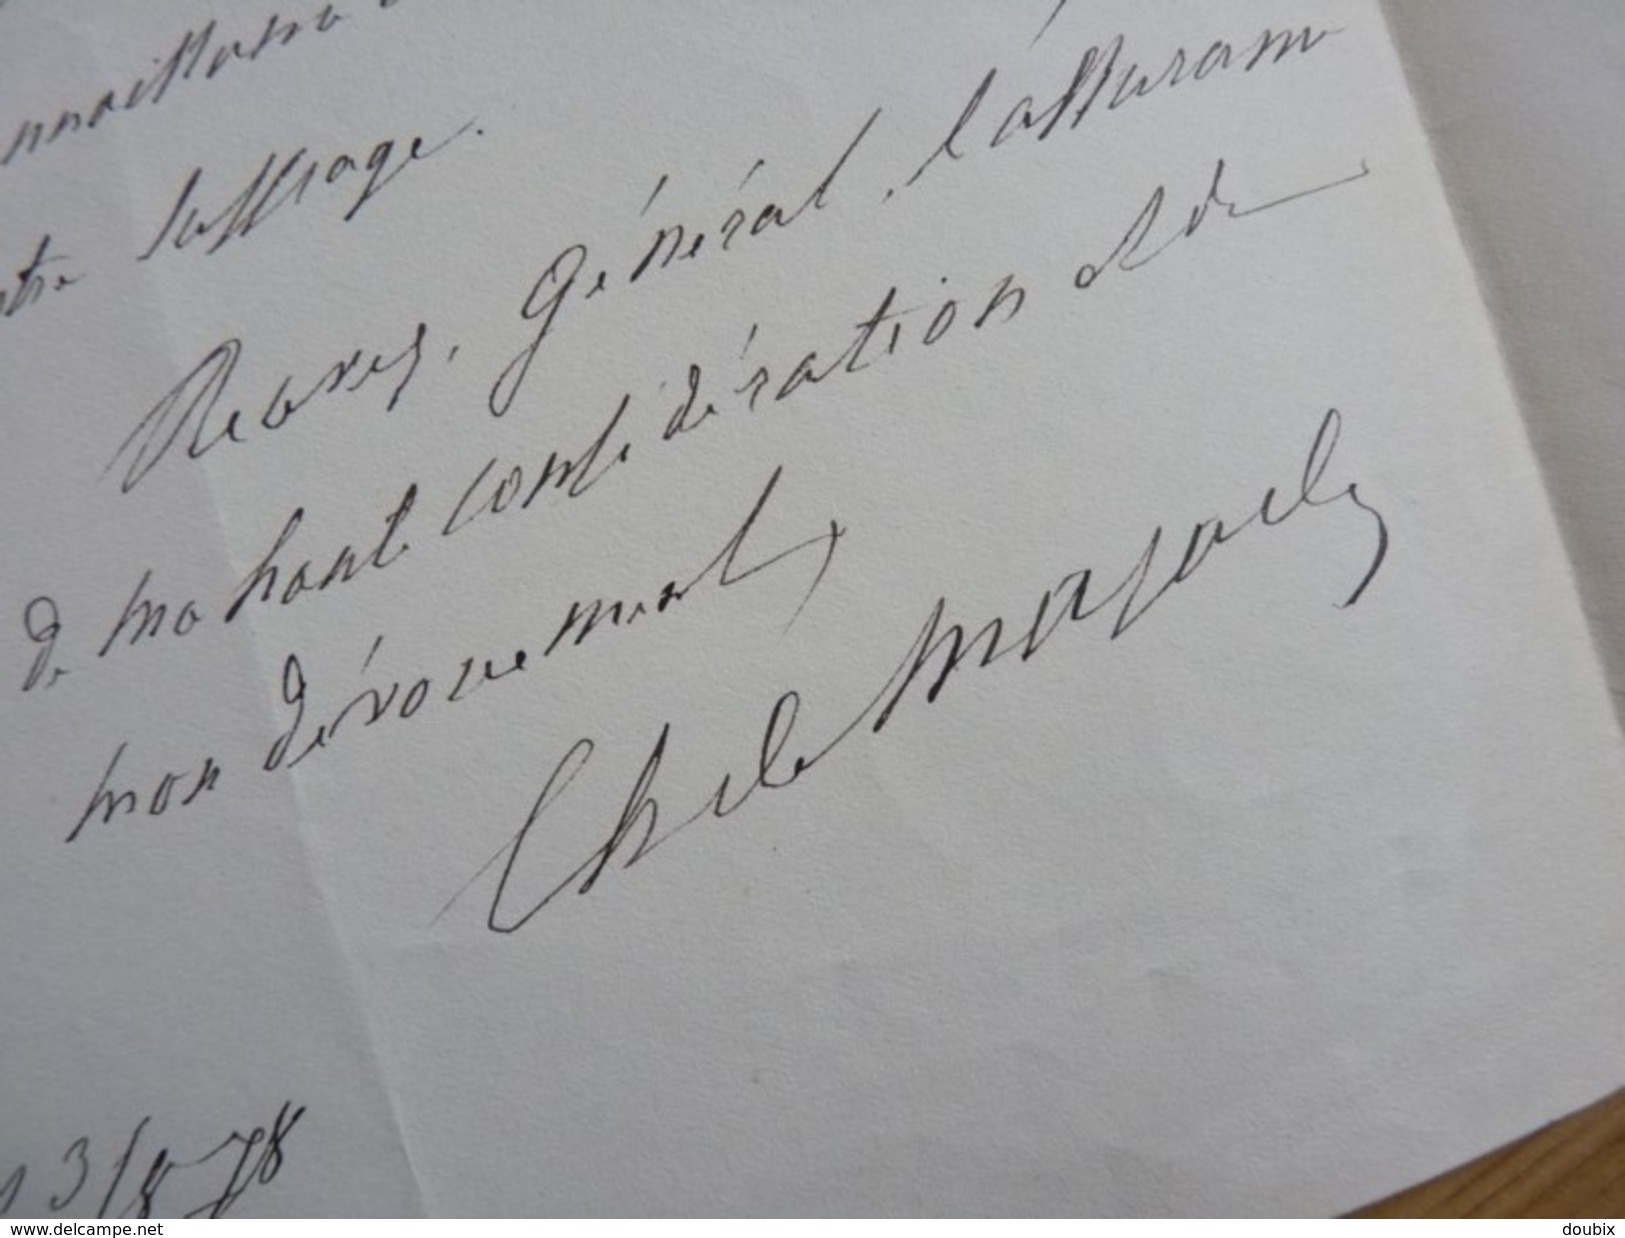 nnaissance
tre suffrage.
Recevez, Général, l'assurance
de ma haute considération et de
mon dévouement
Ch de Mazade
3/8 78
www.delcampe.net
doubix